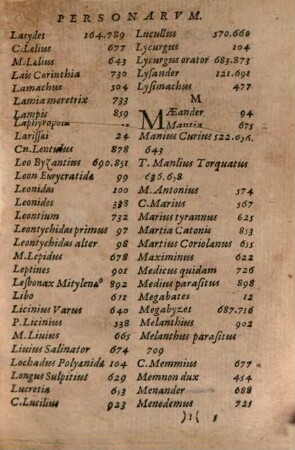 PERSONARVM.
Lacydes 164.789
C.Lælius 677
M.Lælius 643
Lais Corinthia 730
Lamachus 504
Lamia meretrix 733
Lampis 859
Laphyropola
Larissæi 24
Cn.Lentulus 878
Leo Byzantius 690.851
Leon Eurycratidæ 99
Leonidas 100
Leonides 338
Leontium 732
Leontychidas primus 97
Leontychidas alter 98
M.Lepidus 678
Leptines 901
Lesbonax Mitylenæ⁹ 892
Libo 671
Licinius Varus 640
P.Licinius 338
M.Liuius 665
Liuius Salinator 674
Lochadus Polyænidæ 104
Longus Sulpitius 629
Lucretia 613
C.Lucilius 923
Lucullus 570.660
Lycurgus 104
Lycurgus orator 683.873
Lysander 121.691
Lysimachus 477
M
MÆander 94
Mantia 675
Manius Curius 522.636.
643
T. Manlius Torquatus
636.658
M.Antonius 574
C.Marius 567
Marius tyrannus 625
Martia Catonis 853
Martius Coriolanus 655
Maximinus 622
Medicus quidam 726
Medius parasitus 898
Megabates 12
Megabyzes 687.716
Melanthius 902
Melanthus parasitus
709
C.Memmius 677
Memnon dux 454
Menander 688
Menedemus 725
)( 5